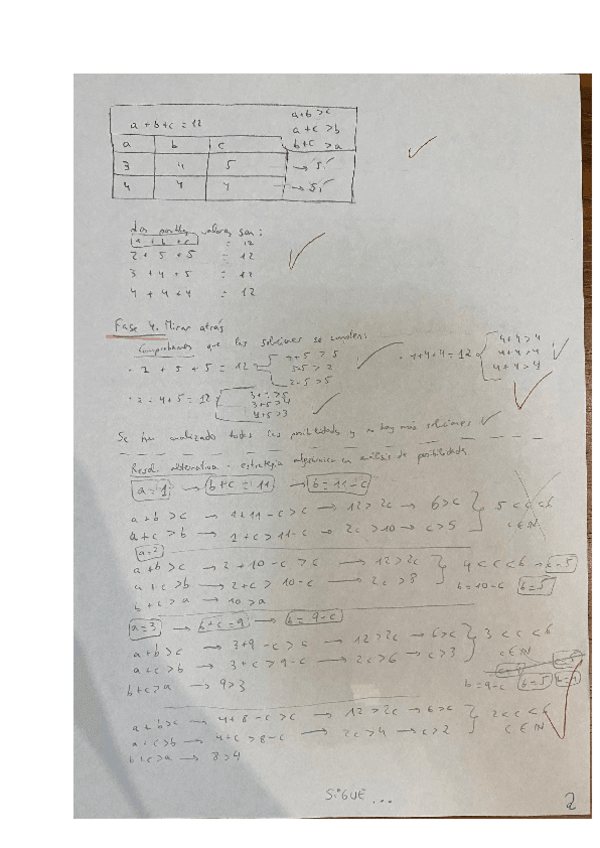 a+b+c=12 a+b>c
a+c>b
a b c b+c>a
3 4 5 → Sí
4 4 4 → Sí
Los posibles valores son:
a + b + c = 12
2 + 5 + 5 = 12
3 + 4 + 5 = 12
4 + 4 + 4 = 12
Fase 4. Mirar atrás
Comprobamos que las soluciones se cumplen:
· 2 + 5 + 5 = 12 5+5 > 2 2+5 > 5
· 4+4+4 = 12 4+4>4 4+4>4 4+4>4
4+5 = 12 3+5>4 4+5>3
Se han analizado todas las posibilidades y no hay más soluciones
Resol. alternativa - estrategia algebraica con análisis de posibilidades
a=1 → b+c=11 → b=11-c
a+b>c → 1+11-c>c → 12>2c → 6>c 5<c<6
a+c>b → 1+c>11-c → 2c>10 → c>5 c∈N
a=2
a+b>c → 2+10-c>c → 12>2c 4<c<6 → c=5
a+c>b → 2+c>10-c → 2c>8 b=10-c b=5
b+c>a → 10>a
a=3 → b+c=9 → b=9-c
a+b>c → 3+9-c>c → 12>2c → 6>c 3<c<6
a+c>b → 3+c>9-c → 2c>6 → c>3 c∈N
b+c>a → 9>3 b=9-c b=5 b=4
a+b>c → 4+8-c>c → 12>2c → 6>c 2<c<6
a+c>b → 4+c>8-c → 2c>4 → c>2 c∈N
b+c>a → 8>4
SIGUE...
2